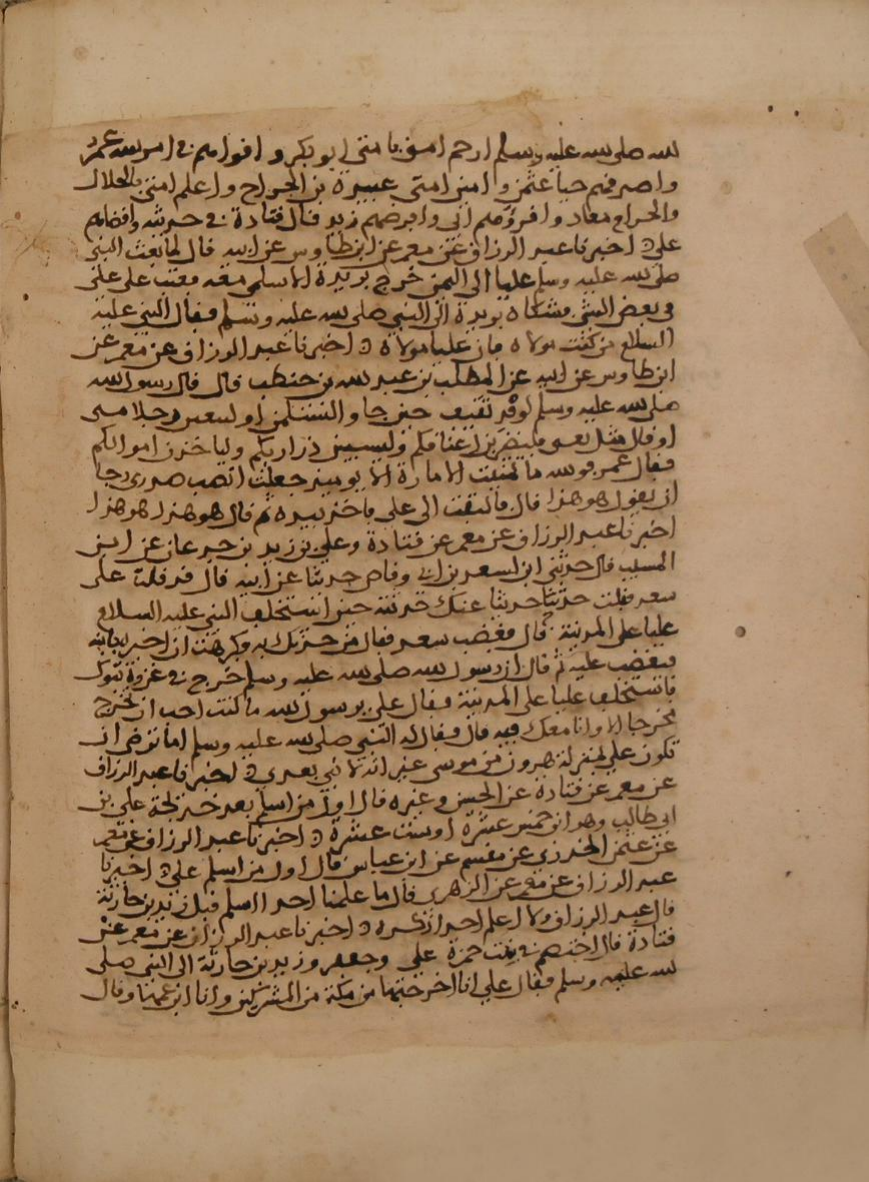 الله صلى الله عليه وسلم ارحم امتي بامتي ابو بكر واقواهم في امر الله عمر
واصدقهم حيا عثمن وامين امتي عبيدة بن الجراح واعلم امتي بالحلال
والحرام معاذ واقرؤهم ابي وافرضهم زيد قال قتادة في حديثه واقضاهم
علي اخبرنا عبد الرزاق عن معمر عن ابن طاوس عن ابيه قال لما بعث النبي
صلى الله عليه وسلم عليا الى اليمن خرج بريدة الاسلمي معه فعتب على علي
في بعض الشي فشكاه بريدة الى النبي صلى الله عليه وسلم فقال النبي عليه
السلام من كنت مولاه فان عليا مولاه اخبرنا عبد الرزاق عن معمر عن
ابن طاوس عن ابيه عن المطلب بن عبد الله بن حنطب قال قال رسول الله
صلى الله عليه وسلم لوفد ثقيف حين جاوا لتسلمن او لنبعثن رجلا مني
او قال مثل نفسي فليضربن اعناقكم وليسبين ذراريكم ولياخذن اموالكم
فقال عمر فوالله ما تمنيت الامارة الا يوميذ جعلت انصب صدري رجا
ان يقول هو هذا قال فالتفت الى علي فاخذ بيده ثم قال هو هذا هو هذا
اخبرنا عبد الرزاق عن معمر عن قتادة وعلي بن زيد بن جدعان عن ابن
المسيب قال حدثني ابن لسعد بن ابي وقاص حديثا عن ابيه قال فدخلت على
سعد فقلت حديثا حدثنا عنك حدثته حين استخلف النبي عليه السلام
عليا على المدينة قال فغضب سعد فقال من حدثك به فكرهت ان اخبره بابنه
فيغضب عليه ثم قال ان رسول الله صلى الله عليه وسلم خرج في غزوة تبوك
فاستخلف عليا على المدينة فقال علي يرسول الله ما كنت احب ان تخرج
مخرجا الا وانا معك فيه قال فقال له النبي صلى الله عليه وسلم اما ترضى ان
تكون علي بمنزلة هرون من موسى غير انه لا نبي بعدي اخبرنا عبد الرزاق
عن معمر عن قتادة عن الحسن وغيره قال اول من اسلم بعد خديجة علي بن
ابي طالب وهو ابن خمس عشرة او ست عشرة اخبرنا عبد الرزاق عن معمر
عن عثمن الجزري عن مقسم عن ابن عباس قال اول من اسلم علي اخبرنا
عبد الرزاق عن معمر عن الزهري قال ما علمنا احدا اسلم قبل زيد بن حارثة
قال عبد الرزاق ولا اعلم احدا ذكره اخبرنا عبد الرزاق عن معمر عن
قتادة قال اختصم في بنت حمزة علي وجعفر وزيد بن حارثة الى النبي صلى
الله عليه وسلم فقال علي انا اخرجتها من مكة من المشركين وانا ابن عمها وقال